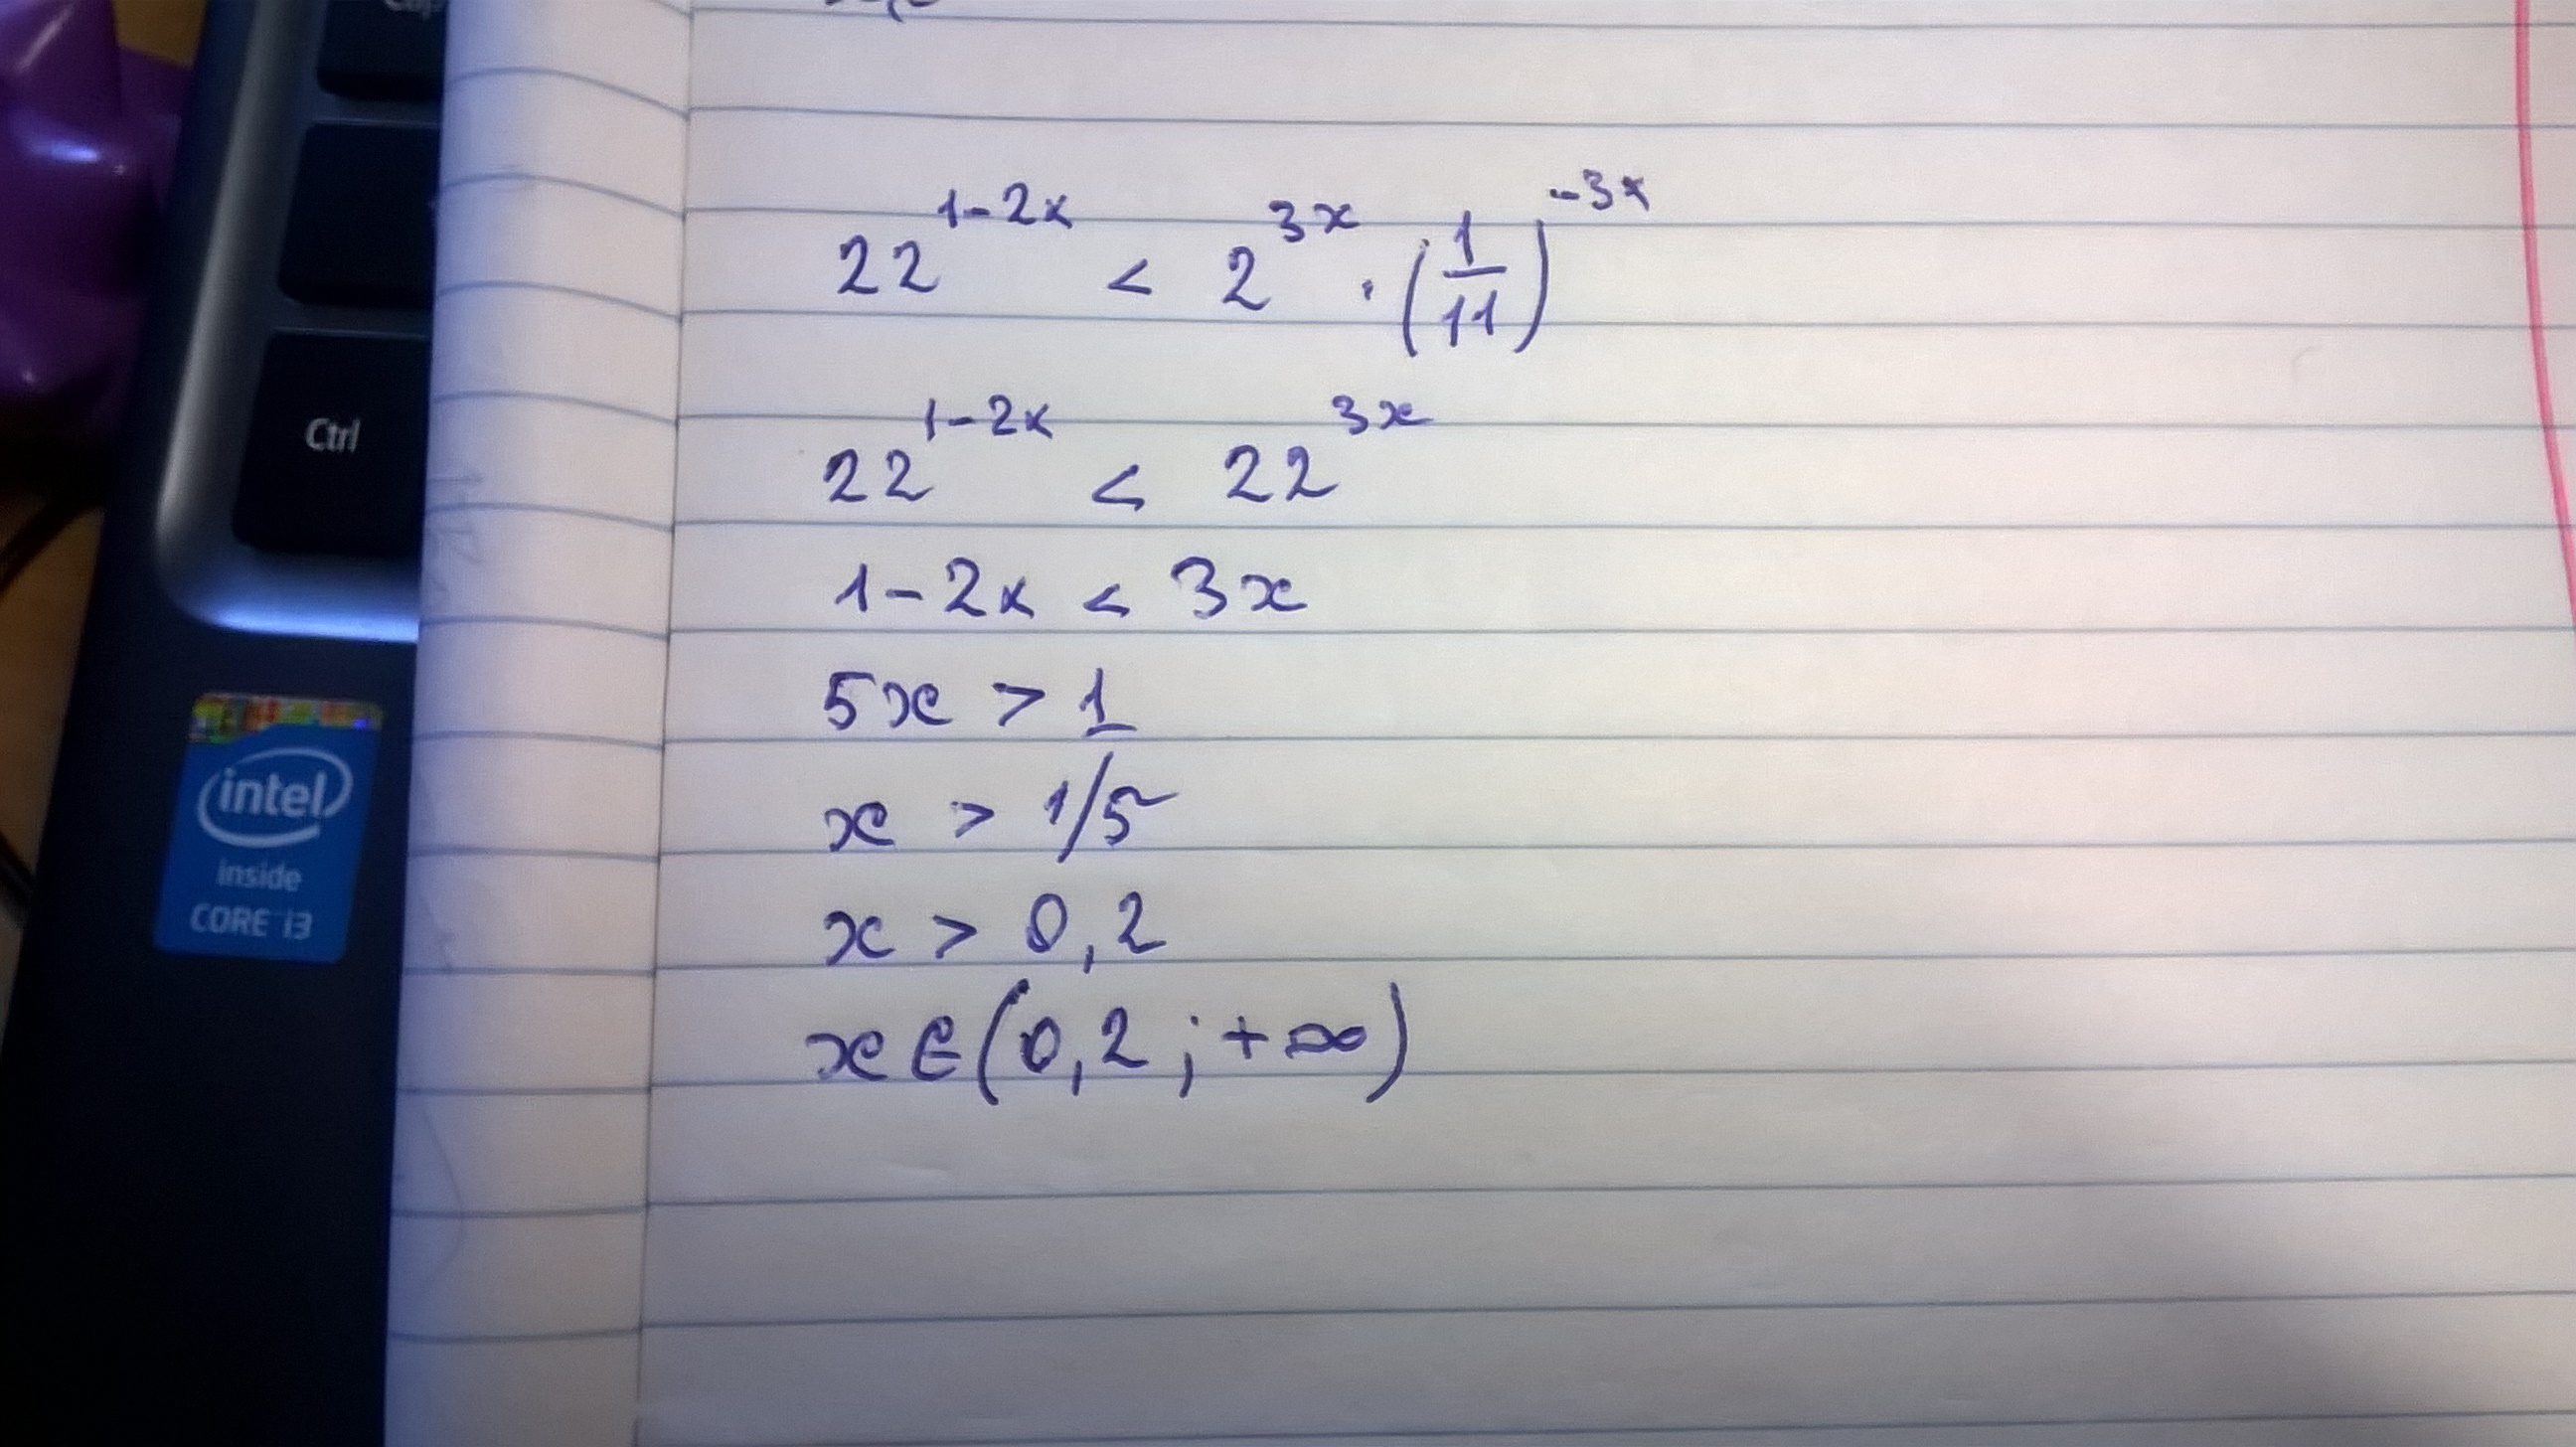 Ctrl
intel
inside
CORE i3
22^{1-2x} < 2^{3x} · (1/11)^{-3x}
22^{1-2x} < 22^{3x}
1-2x < 3x
5x > 1
x > 1/5
x > 0,2
x ∈ (0,2 ; +∞)